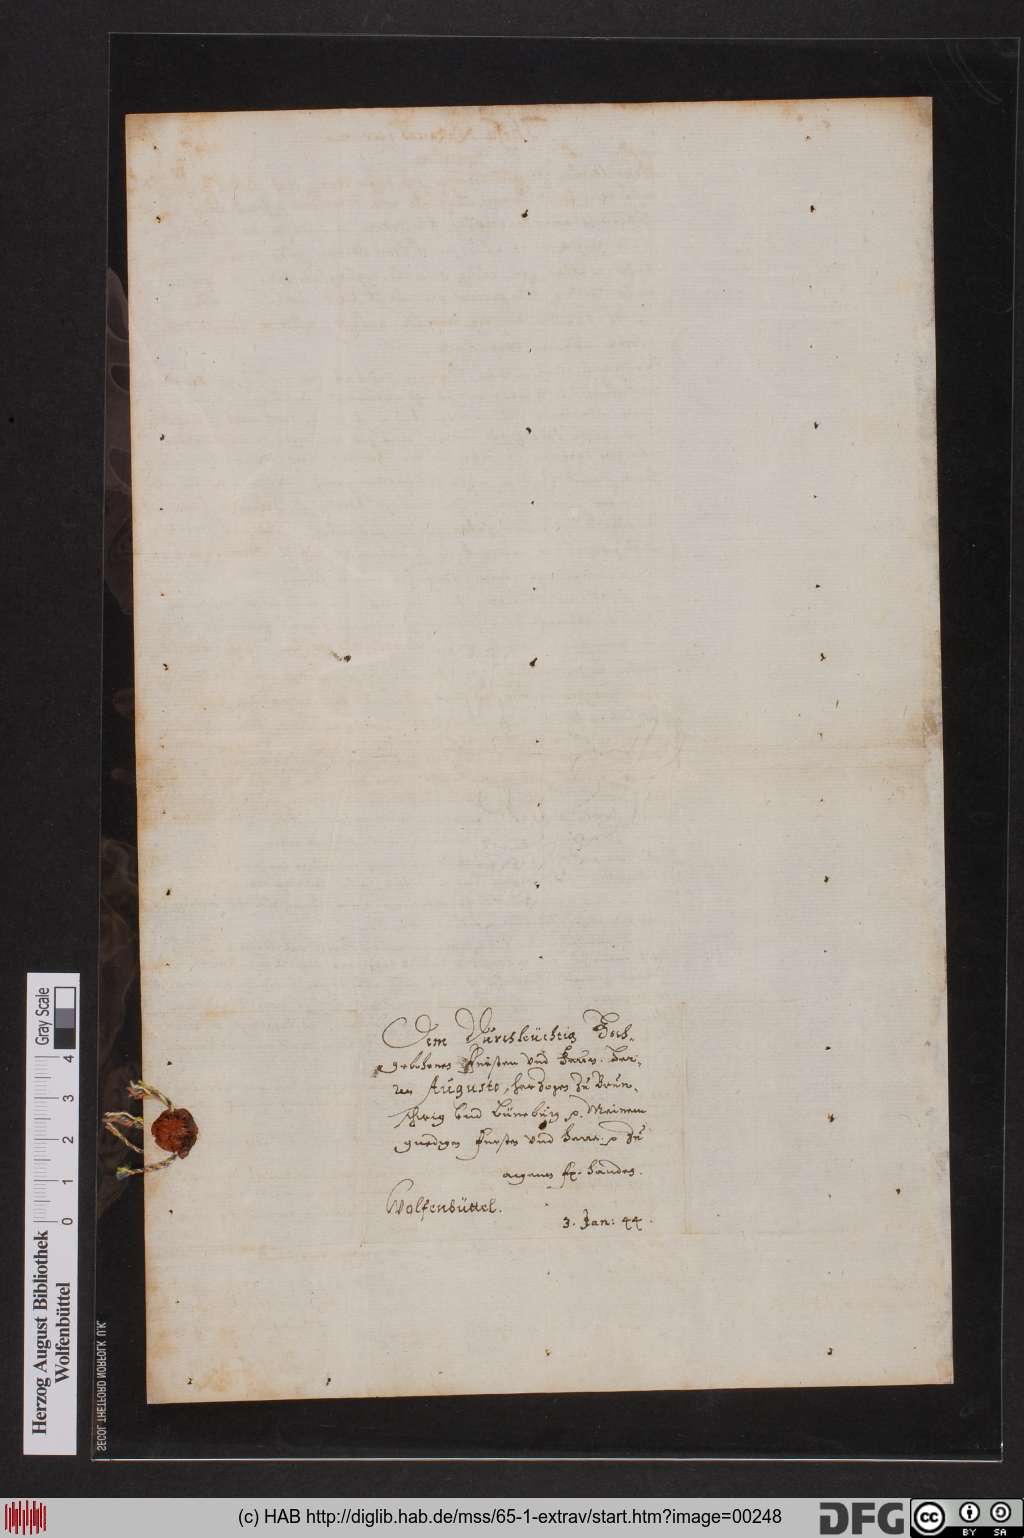 Dem Durchleüchtig Hoch-
gebohrnes Fürsten vnd Herrn. Her-
ren Augusto, Herzogen zu Brun-
schwig vnd Lüneburg p. Meinem
gnedigen Fursten vnd Herrn p zu
aigenen fr. Handen.
Wolfenbüttel.
3. Jan: 44.
Herzog August Bibliothek
Wolfenbüttel
0 1 2 3 4
Gray Scale
SECOL THETFORD NORFOLK U.K.
(c) HAB http://diglib.hab.de/mss/65-1-extrav/start.htm?image=00248
DFG
cc BY SA